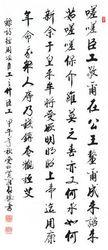 嗟嗟臣工敬爾在公王釐爾成來咨來
茹嗟嗟保介維莫之春亦又何求如何
新畬於皇來牟將受厥明明昭上帝迄用康
年命我眾人庤乃錢鎛奄觀銍艾
詩經周頌臣工之什臣工 甲午年秋